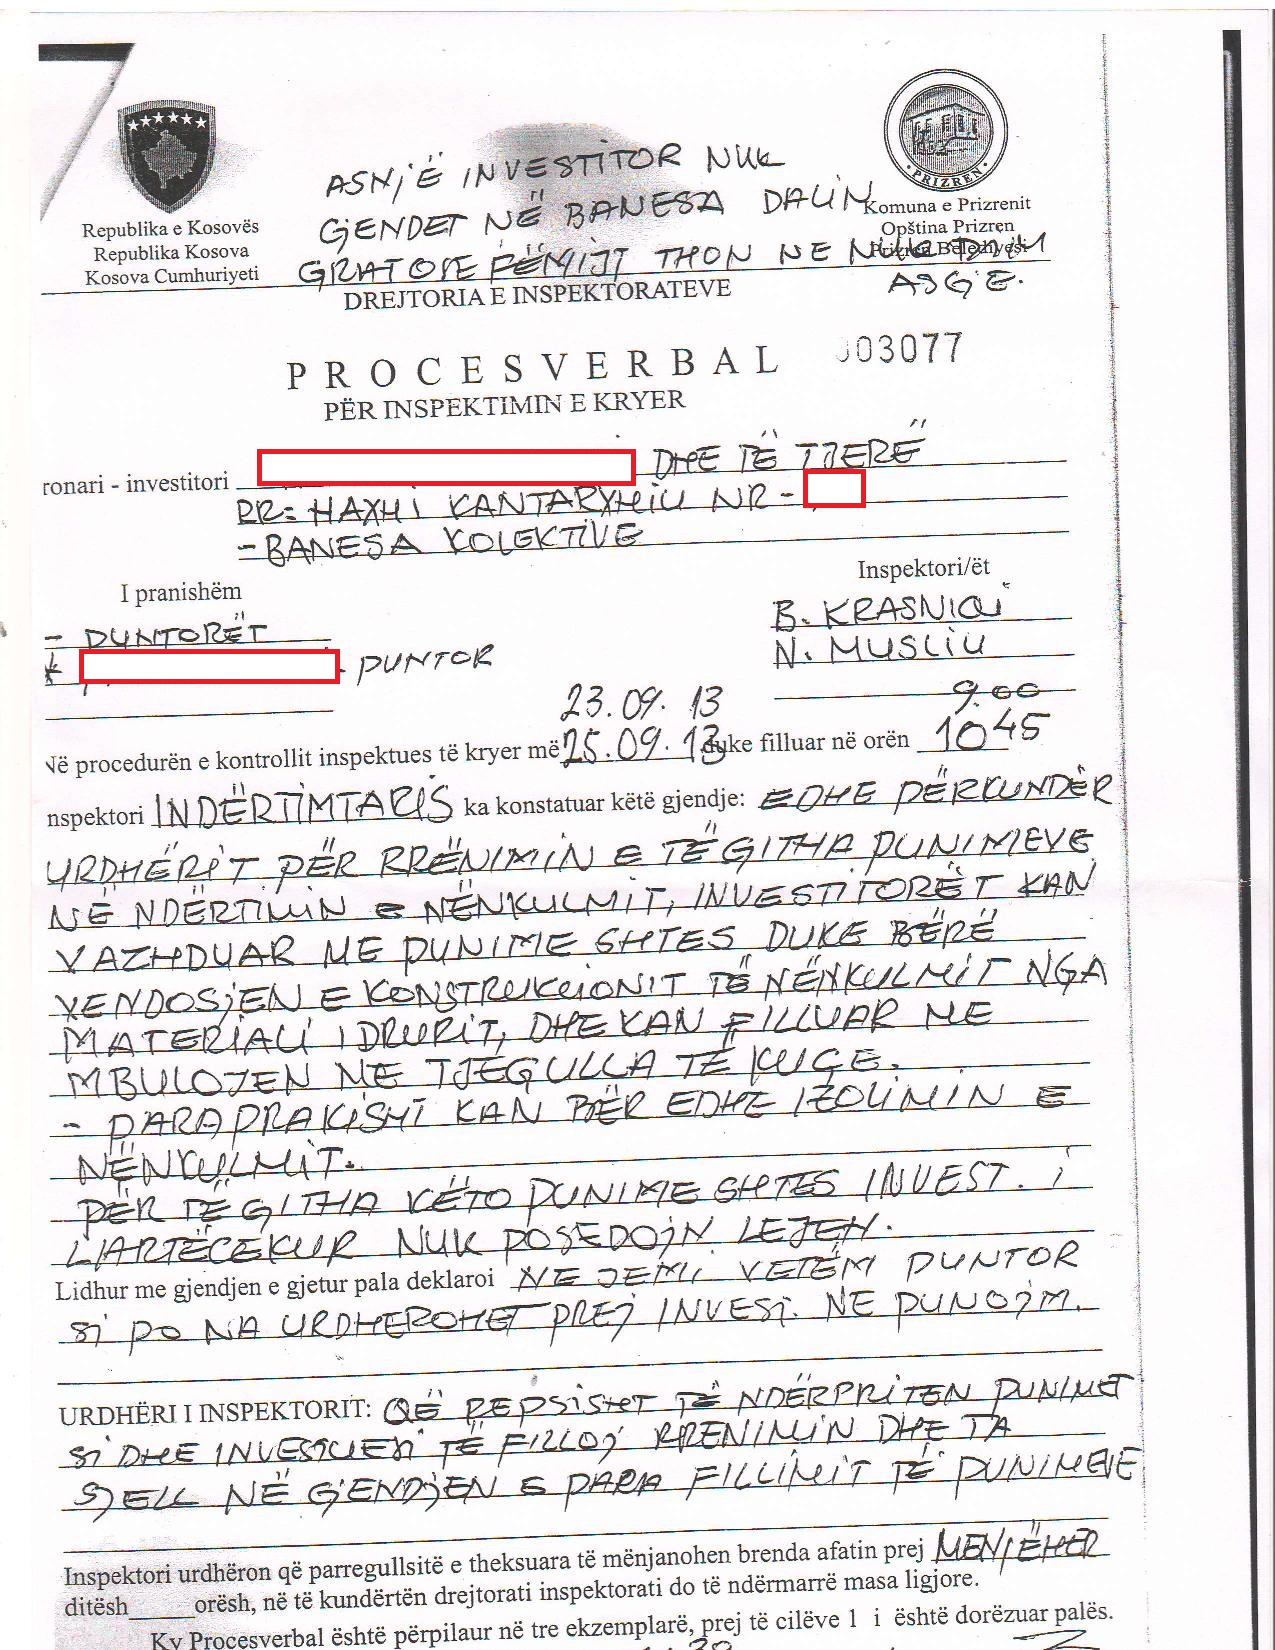 ASNJË INVESTITOR NUK
GJENDET NË BANESA DALIN
GRATOSE FËMIJT THON NE NUK DAIM
ASGJË.
Republika e Kosovës
Republika Kosova
Kosova Cumhuriyeti
PRIZREN
Komuna e Prizrenit
Opština Prizren
Prizren Belediyesi
DREJTORIA E INSPEKTORATEVE
PROCESVERBAL
03077
PËR INSPEKTIMIN E KRYER
ronari - investitori DHE TË TJERË
RR= HAXHI KANTARXHIU NR -
- BANESA KOLEKTIVE
I pranishëm
Inspektori/ët
- PUNTORËT
B. KRASNIQI
PUNTOR
N. MUSLIU
23.09.13
9.00
Në procedurën e kontrollit inspektues të kryer më 25.09.13 duke filluar në orën 10 45
nspektori INDËRTIMTARIS ka konstatuar këtë gjendje: EDHE PËRKUNDËR
URDHËRIT PËR RRËNIMIN E TËGITHA PUNIMEVE
NË NDËRTIMIN E NËNKULMIT, INVESTITORËT KAN
VAZHDUAR ME PUNIME SHTES DUKE BËRË
VENDOSJEN E KONSTRUKCIONIT TË NËNKULMIT NGA
MATERIALI I DRURIT, DHE KAN FILLUAR ME
MBULOJEN ME TJEGULLA TË KUÇE.
- PARAPRAKISHT KAN BËR EDHE IZOLIMIN E
NËNKULMIT.
PËR TË GITHA KËTO PUNIME SHTES INVEST. I
LJARTËCEKUR NUK POSEDOJN LEJEN.
Lidhur me gjendjen e gjetur pala deklaroi NE JEMI VETËM PUNTOR
SI PO NA URDHEROHET PREJ INVEST. NE PUNOJM.
URDHËRI I INSPEKTORIT: QË REPSISHT TË NDËRPRITEN PUNIMET
SI DHE INVESTUESI TË FILLOJ RRENIMIN DHE TA
SJELL NË GJENDJEN E PARA FILLIMIT TË PUNIMEVE
Inspektori urdhëron që parregullsitë e theksuara të mënjanohen brenda afatin prej MENJËHER
ditësh_____orësh, në të kundërtën drejtorati inspektorati do të ndërmarrë masa ligjore.
Ky Procesverbal është përpilaur në tre ekzemplarë, prej të cilëve 1 i është dorëzuar palës.